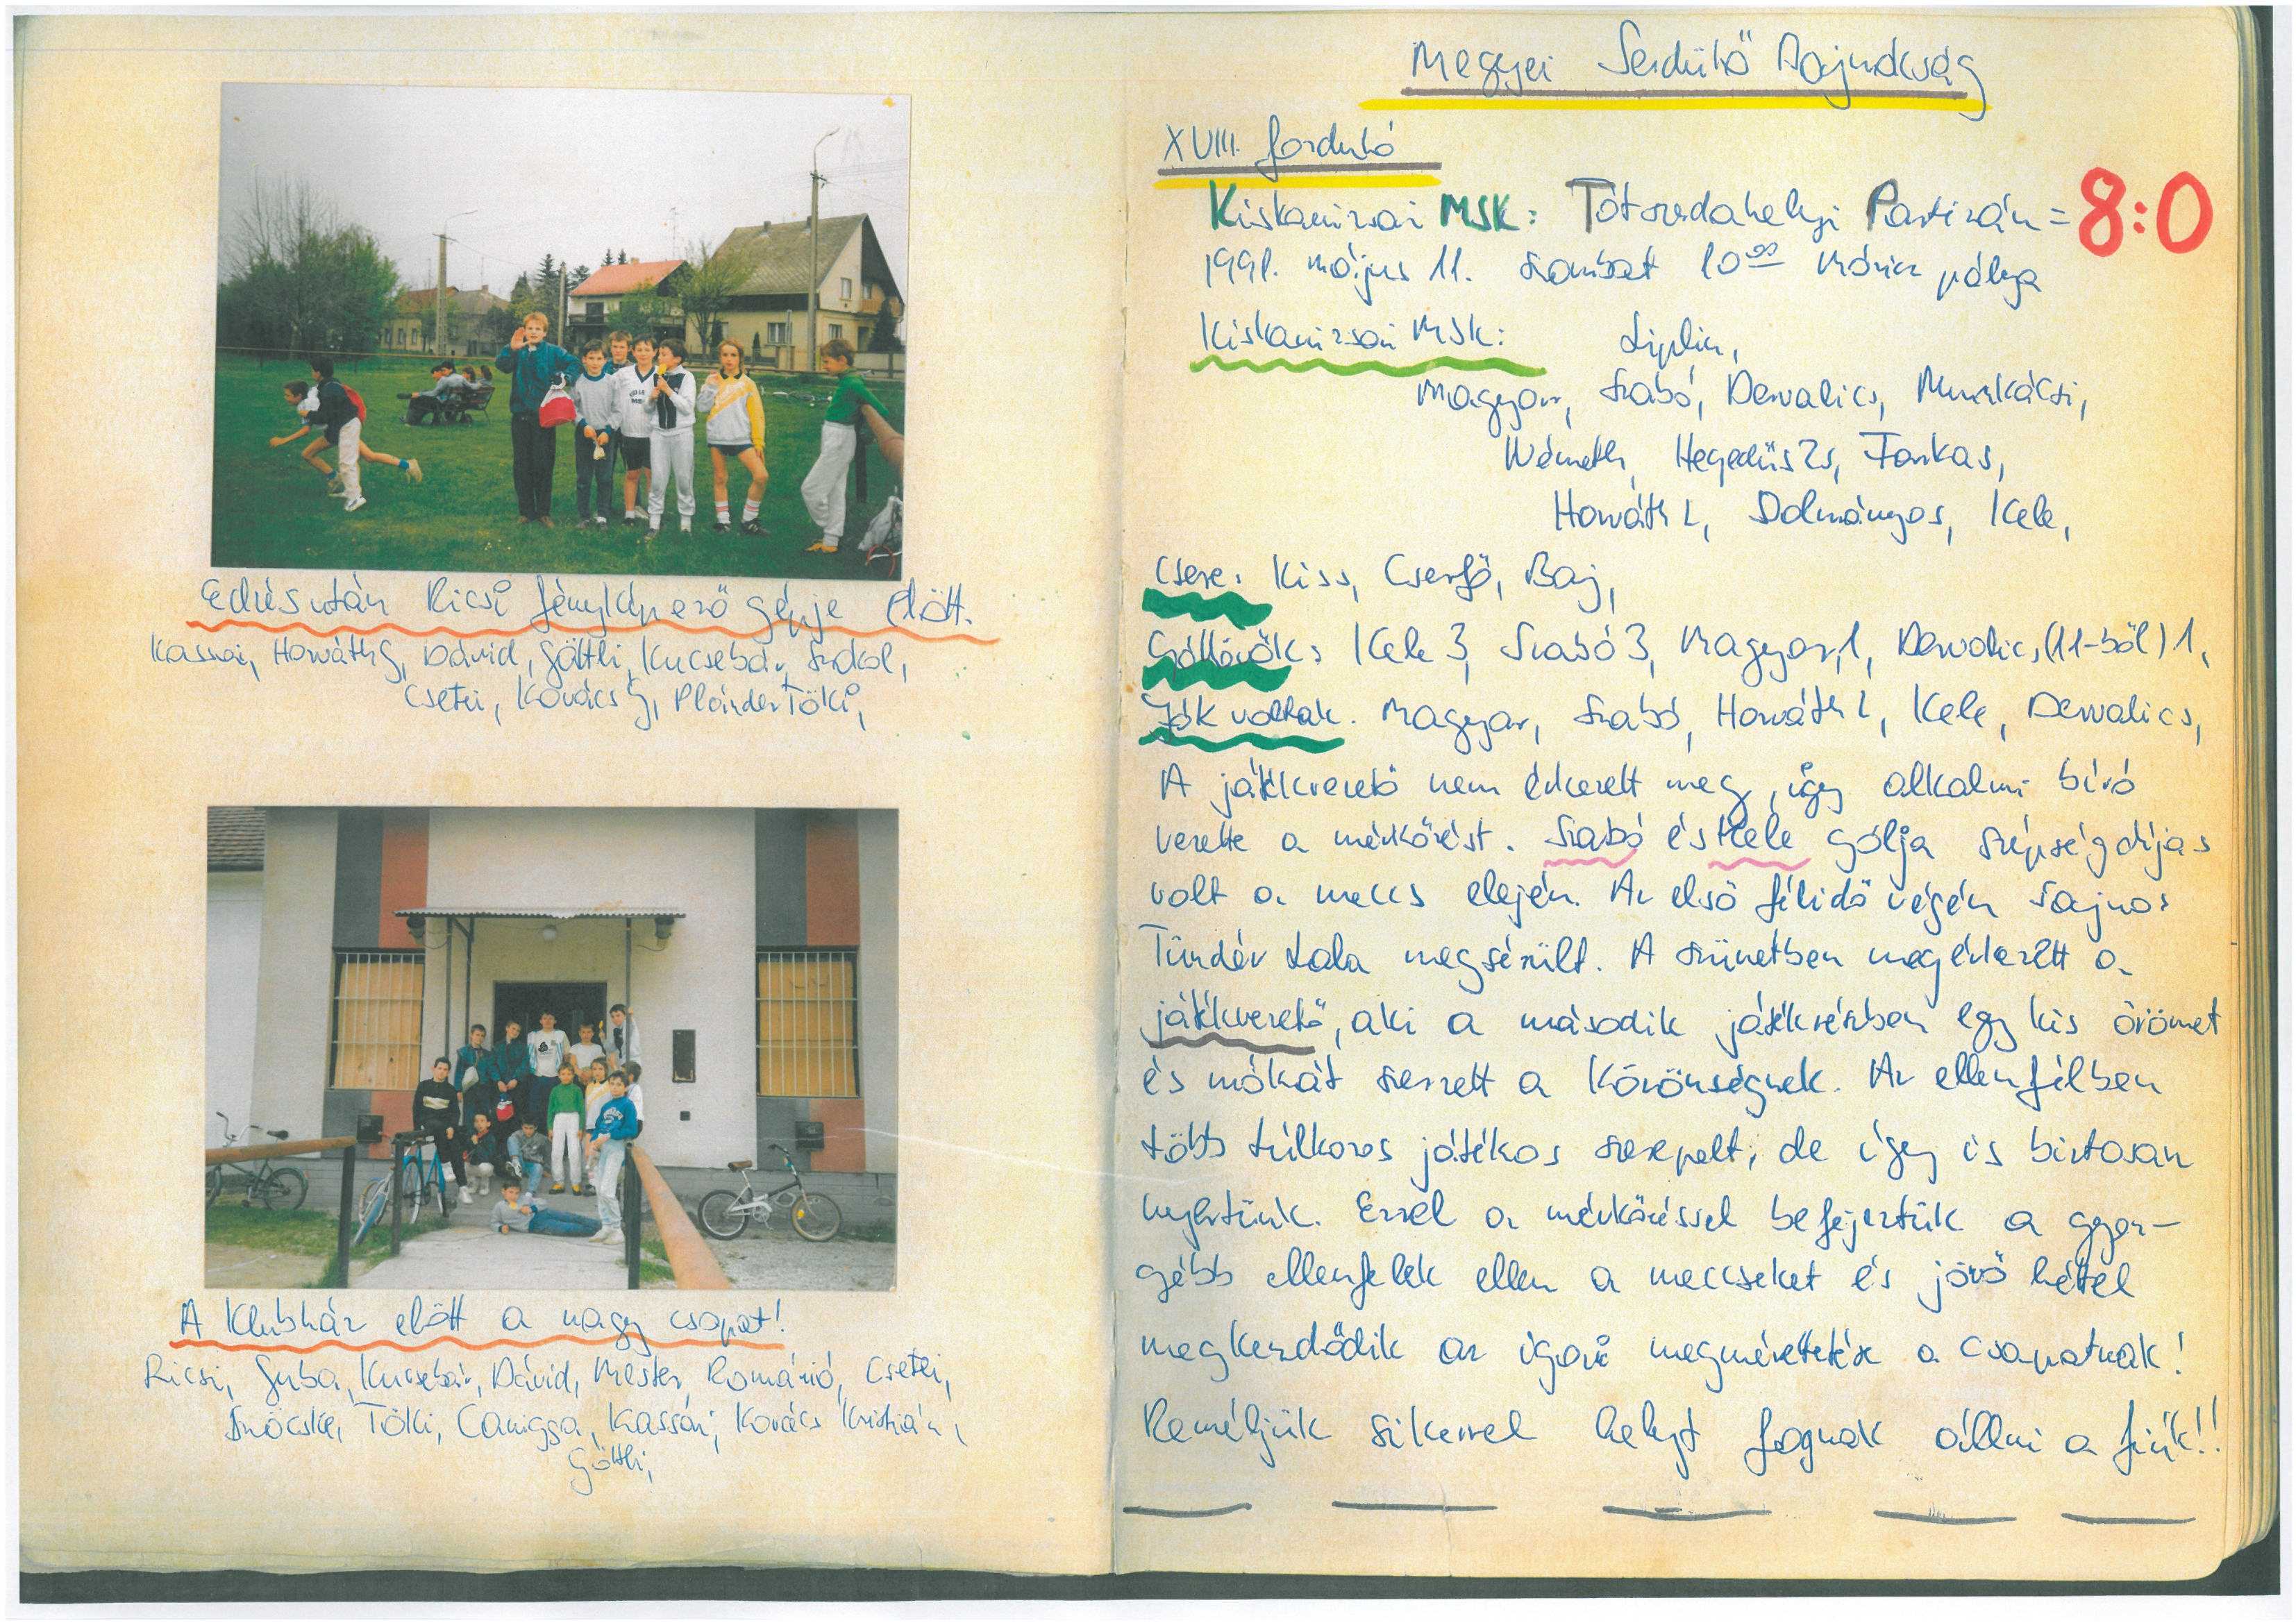 Edzés után Ricsi fényképező gépje előtt.
Kassai, Horváth G, Dávid, Göttli, Kucsebár, Szokol,
Csetei, Kovács G, Plánder Töki,
A Klubház előtt a nagy csapat!
Ricsi, Guba, Kucsebár, Dávid, Mester, Románió, Csetei,
Töki, Canigga, Kassai, Kovács Krisztián,
Göttli,
Megyei Serdülő Bajnokság
XVIII. forduló
Kiskanizsai MSK: Tótszerdahelyi Partizán = 8:0
1991. május 11. szombat 10 00 Móricz pálya
Kiskanizsai MSK: Liplin,
Magyar, Szabó, Dervalics, Munkácsi,
Németh, Hegedüs Zs, Farkas,
Horváth L, Dolmányos, Kele,
Csere: Kiss, Cserfő, Baj,
Góllövők: Kele 3, Szabó 3, Magyar, 1, Dervalics, (11-ből) 1,
Jók voltak. Magyar, Szabó, Horváth L, Kele, Dervalics,
A játékvezető nem érkezett meg, így alkalmi bíró
vezette a mérkőzést. Szabó és Kele gólja szépségdíjas
volt a meccs elején. Az első félidő végén sajnos
Tündér Lala megsérült. A szünetben megérkezett a
játékvezető, aki a második játékrészben egy kis örömet
és mókát szerzett a Közönségnek. Az ellenfélben
több túlkoros játékos szerepelt, de így is biztosan
nyertünk. Ezzel a mérkőzéssel befejeztük a gyen-
gébb ellenfelek ellen a meccseket és jövő héttel
megkezdődik az igazi megmérettetése a csapatnak!
Reméljük sikerrel helyt fognak állni a fiúk!!